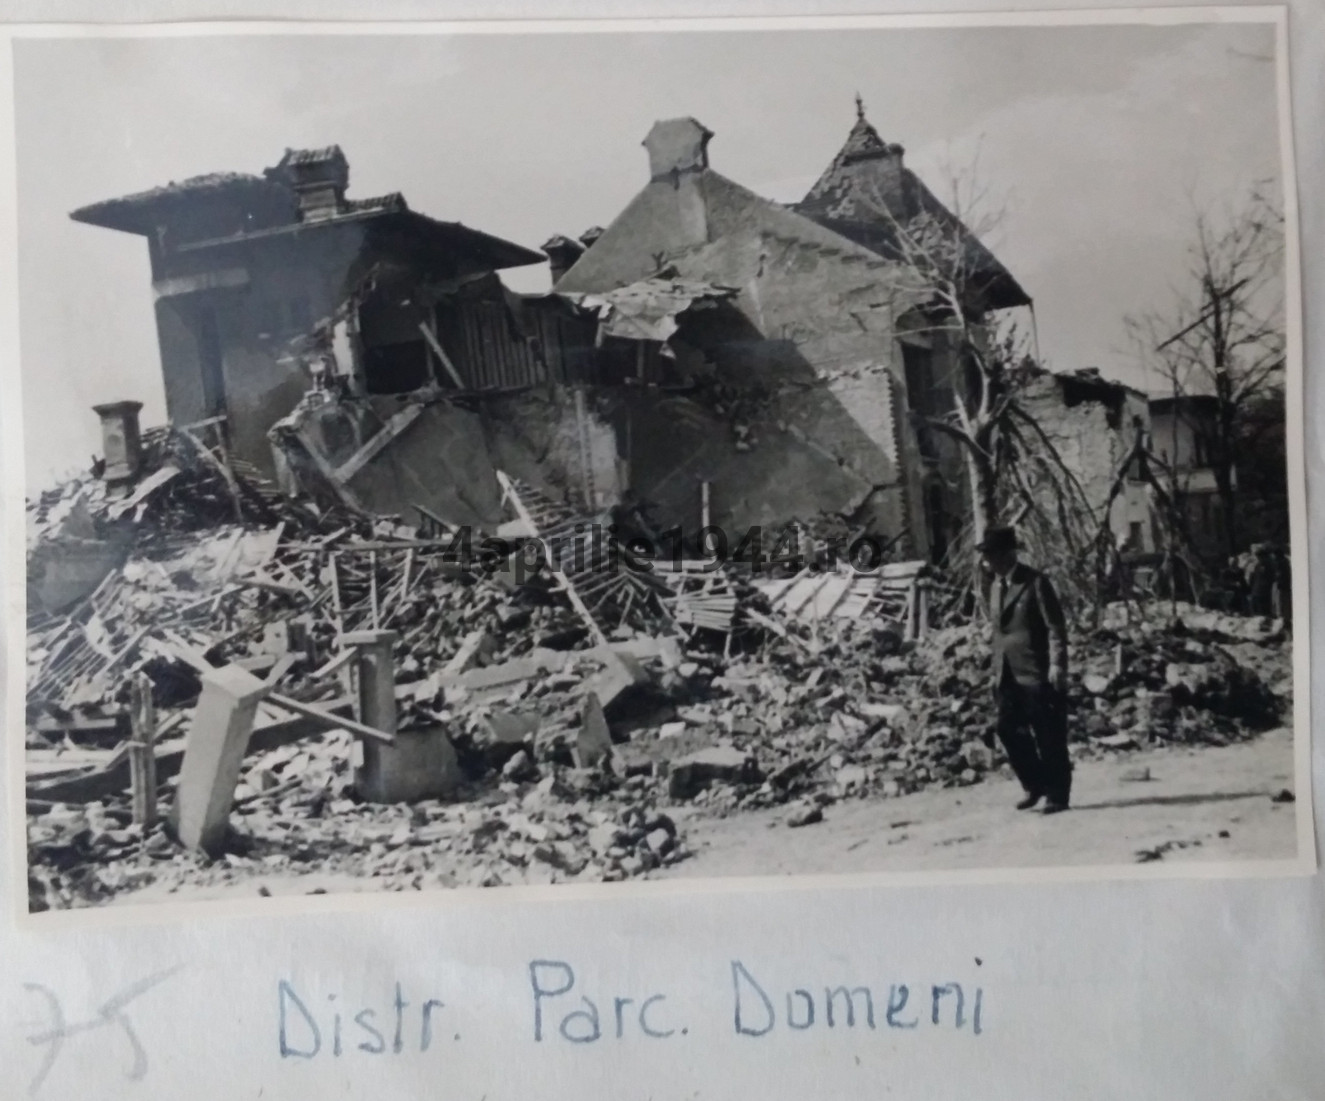 4aprilie1944.ro
75 Distr. Parc. Domeni